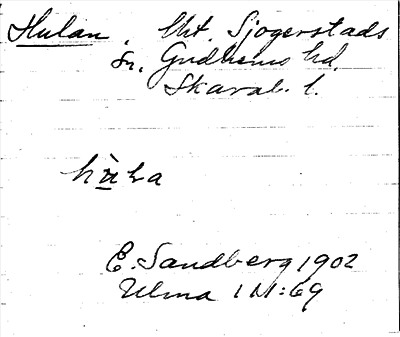 Hulan, Utt. Sjogerstads
sn. Gudhems hd.
Skarab. l.
E. Sandberg 1902
Ulma 1 M:69